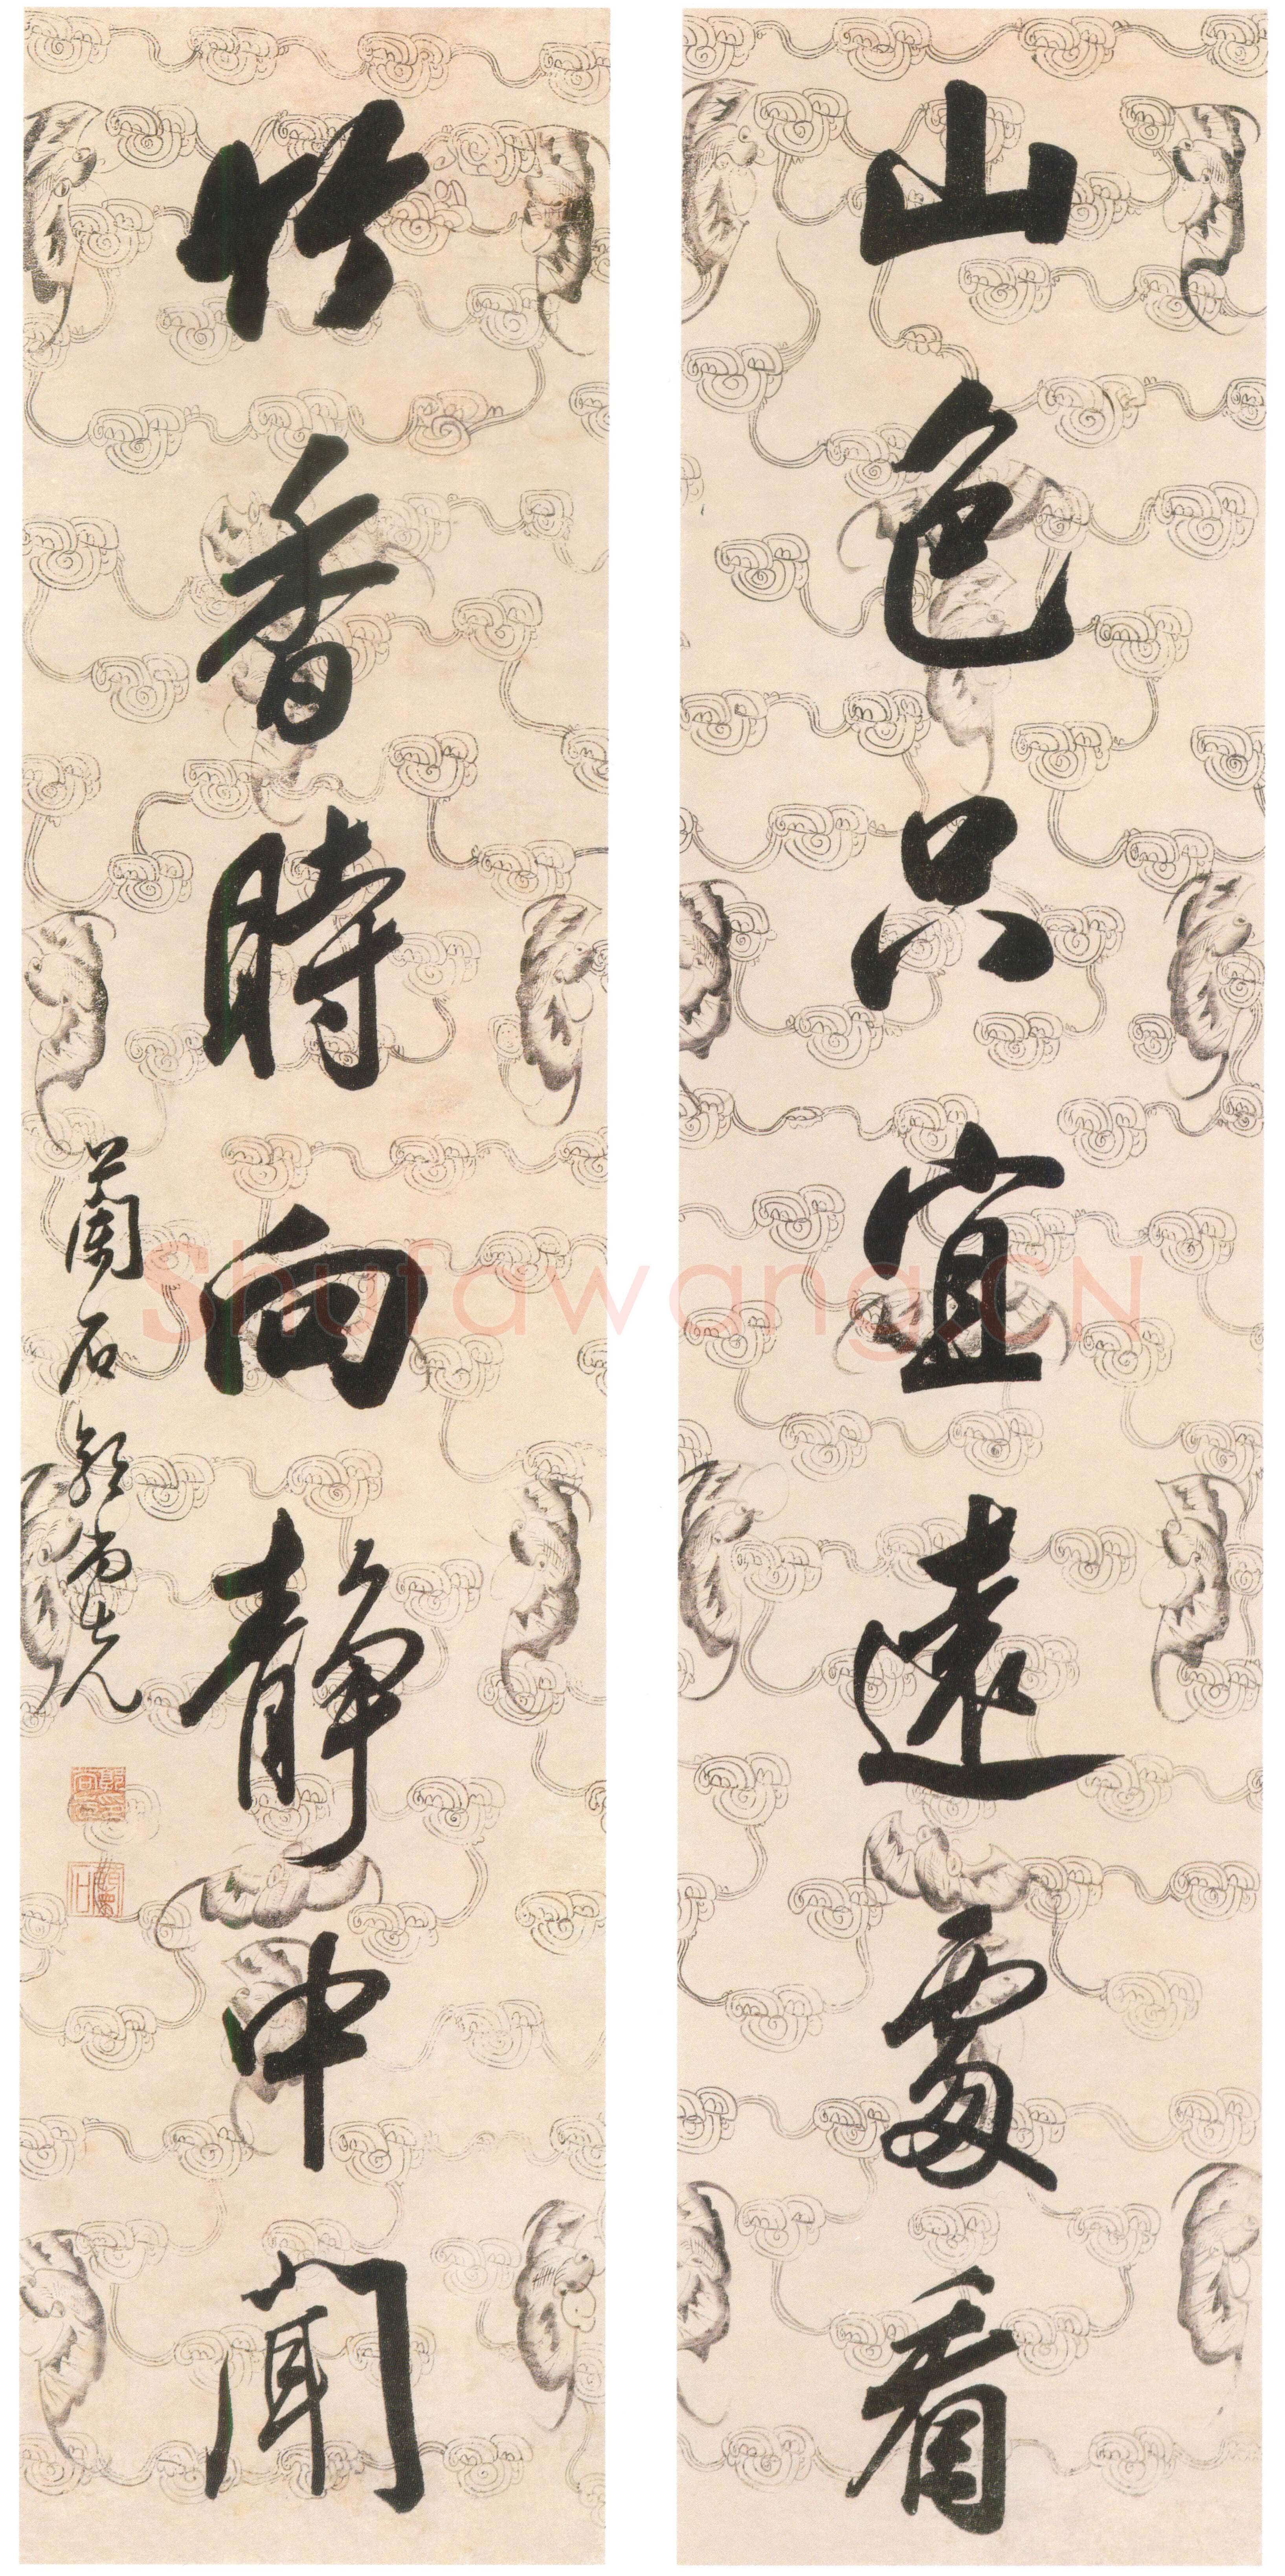 山色只宜遠處看
竹香時向静中聞
蘭石郭尚先
Shufawang.CN